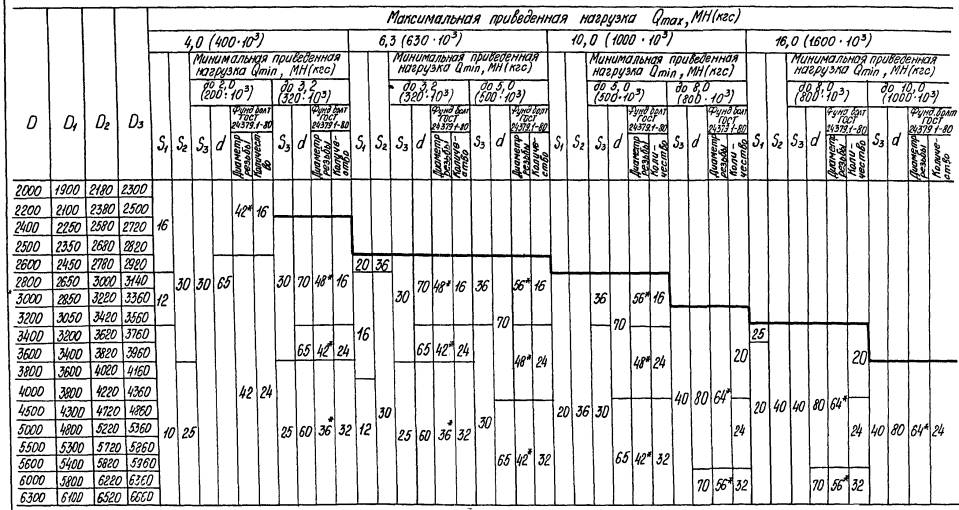 Максимальная приведенная нагрузка Qmax, МН(кгс)
4,0 (400·10³) 6,3 (630·10³) 10,0 (1000·10³) 16,0 (1600·10³)
Минимальная приведенная нагрузка Qmin, МН(кгс) Минимальная приведенная нагрузка Qmin, МН(кгс) Минимальная приведенная нагрузка Qmin, МН(кгс) Минимальная приведенная нагрузка Qmin, МН(кгс)
до 2,0 (200·10³) до 3,2 (320·10³) до 3,2 (320·10³) до 5,0 (500·10³) до 5,0 (500·10³) до 8,0 (800·10³) до 8,0 (800·10³) до 10,0 (1000·10³)
Фунд болт ГОСТ 24379.1-80 Фунд болт ГОСТ 24379.1-80 Фунд болт ГОСТ 24379.1-80 Фунд болт ГОСТ 24379.1-80 Фунд болт ГОСТ 24379.1-80 Фунд болт ГОСТ 24379.1-80 Фунд болт ГОСТ 24379.1-80 Фунд. болт ГОСТ 24379.1-80
D D₁ D₂ D₃ S₁ S₂ S₃ d Диаметр резьбы Количество S₃ d Диаметр резьбы Количество S₁ S₂ S₃ d Диаметр резьбы Количество S₃ d Диаметр резьбы Количество S₁ S₂ S₃ d Диаметр резьбы Количество S₃ d Диаметр резьбы Количество S₁ S₂ S₃ d Диаметр резьбы Количество S₃ d Диаметр резьбы Количество
2000 1900 2180 2300
2200 2100 2380 2500 42* 16
2400 2250 2580 2720 16
2500 2350 2680 2820
2600 2450 2780 2920 20 36
2800 2650 3000 3140 30 30 65 30 70 48* 16 70 48* 16 36 56* 16
3000 2850 3220 3360 12 30 36 56* 16
3200 3050 3420 3560 70 70
3400 3200 3620 3760 16 25
3600 3400 3820 3960 65 42* 24 65 42* 24 48* 24 48* 24 20 20
3800 3600 4020 4160
4000 3800 4220 4360 42 24 40 80 64*
4500 4300 4720 4860 30 30 20 36 30 20 40 40 80 64*
5000 4800 5220 5360 10 25 25 60 36* 32 12 25 60 36* 32 24 24 40 80 64* 24
5500 5300 5720 5860
5600 5400 5820 5960 65 42* 32 65 42* 32
6000 5800 6220 6360 70 56* 32 70 56* 32
6300 6100 6520 6660